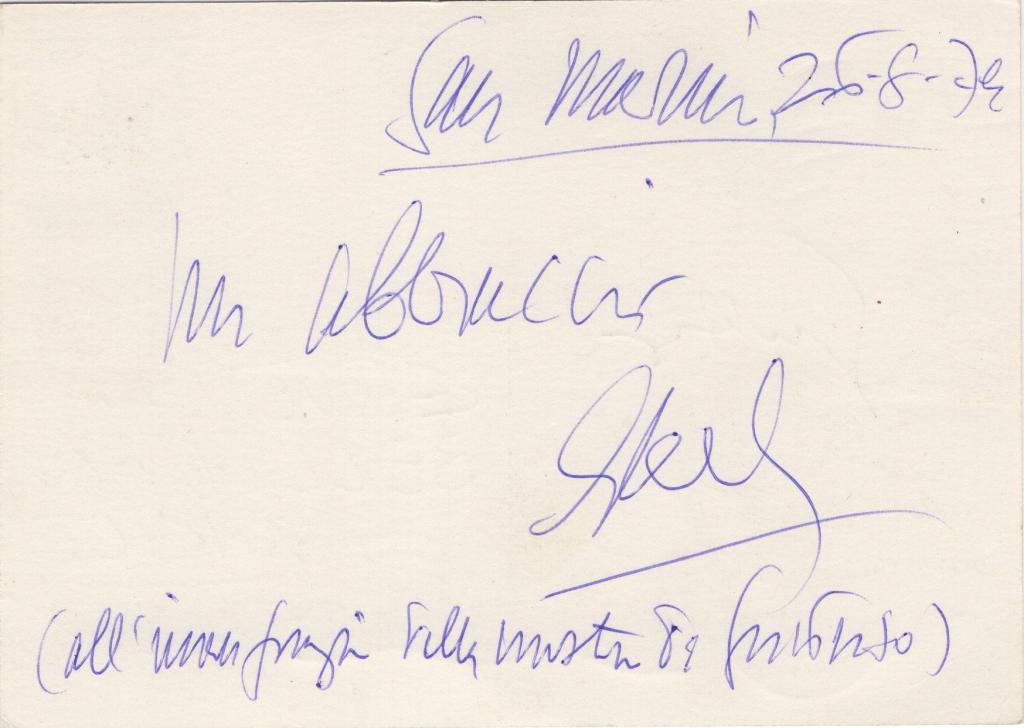 San Marino, 25-8-74
Un abbraccio
(all'inaugurazione della mostra di Guttuso)